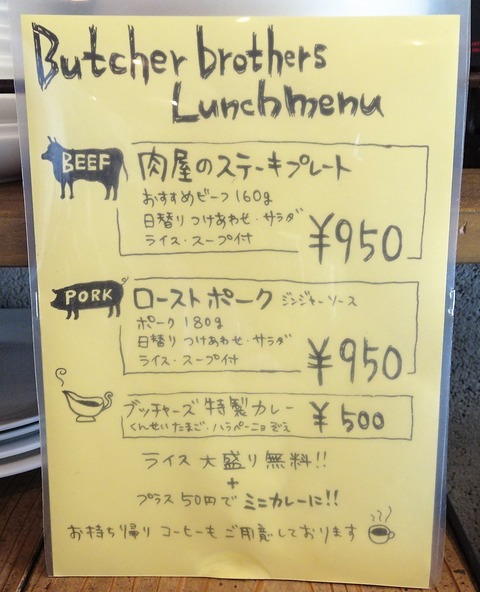 Butcher brothers
Lunchmenu
BEEF
肉屋のステーキプレート
おすすめビーフ160g
日替りつけあわせ・サラダ
ライス・スープ付
¥950
PORK
ローストポーク ジンジャーソース
ポーク 180g
日替りつけあわせ・サラダ
ライス・スープ付
¥950
ブッチャーズ特製カレー ¥500
くんせいたまご・ハラペーニョ ぞえ
ライス 大盛り無料!!
+
プラス50円で ミニカレーに!!
お持ち帰り コーヒーも ご用意しております